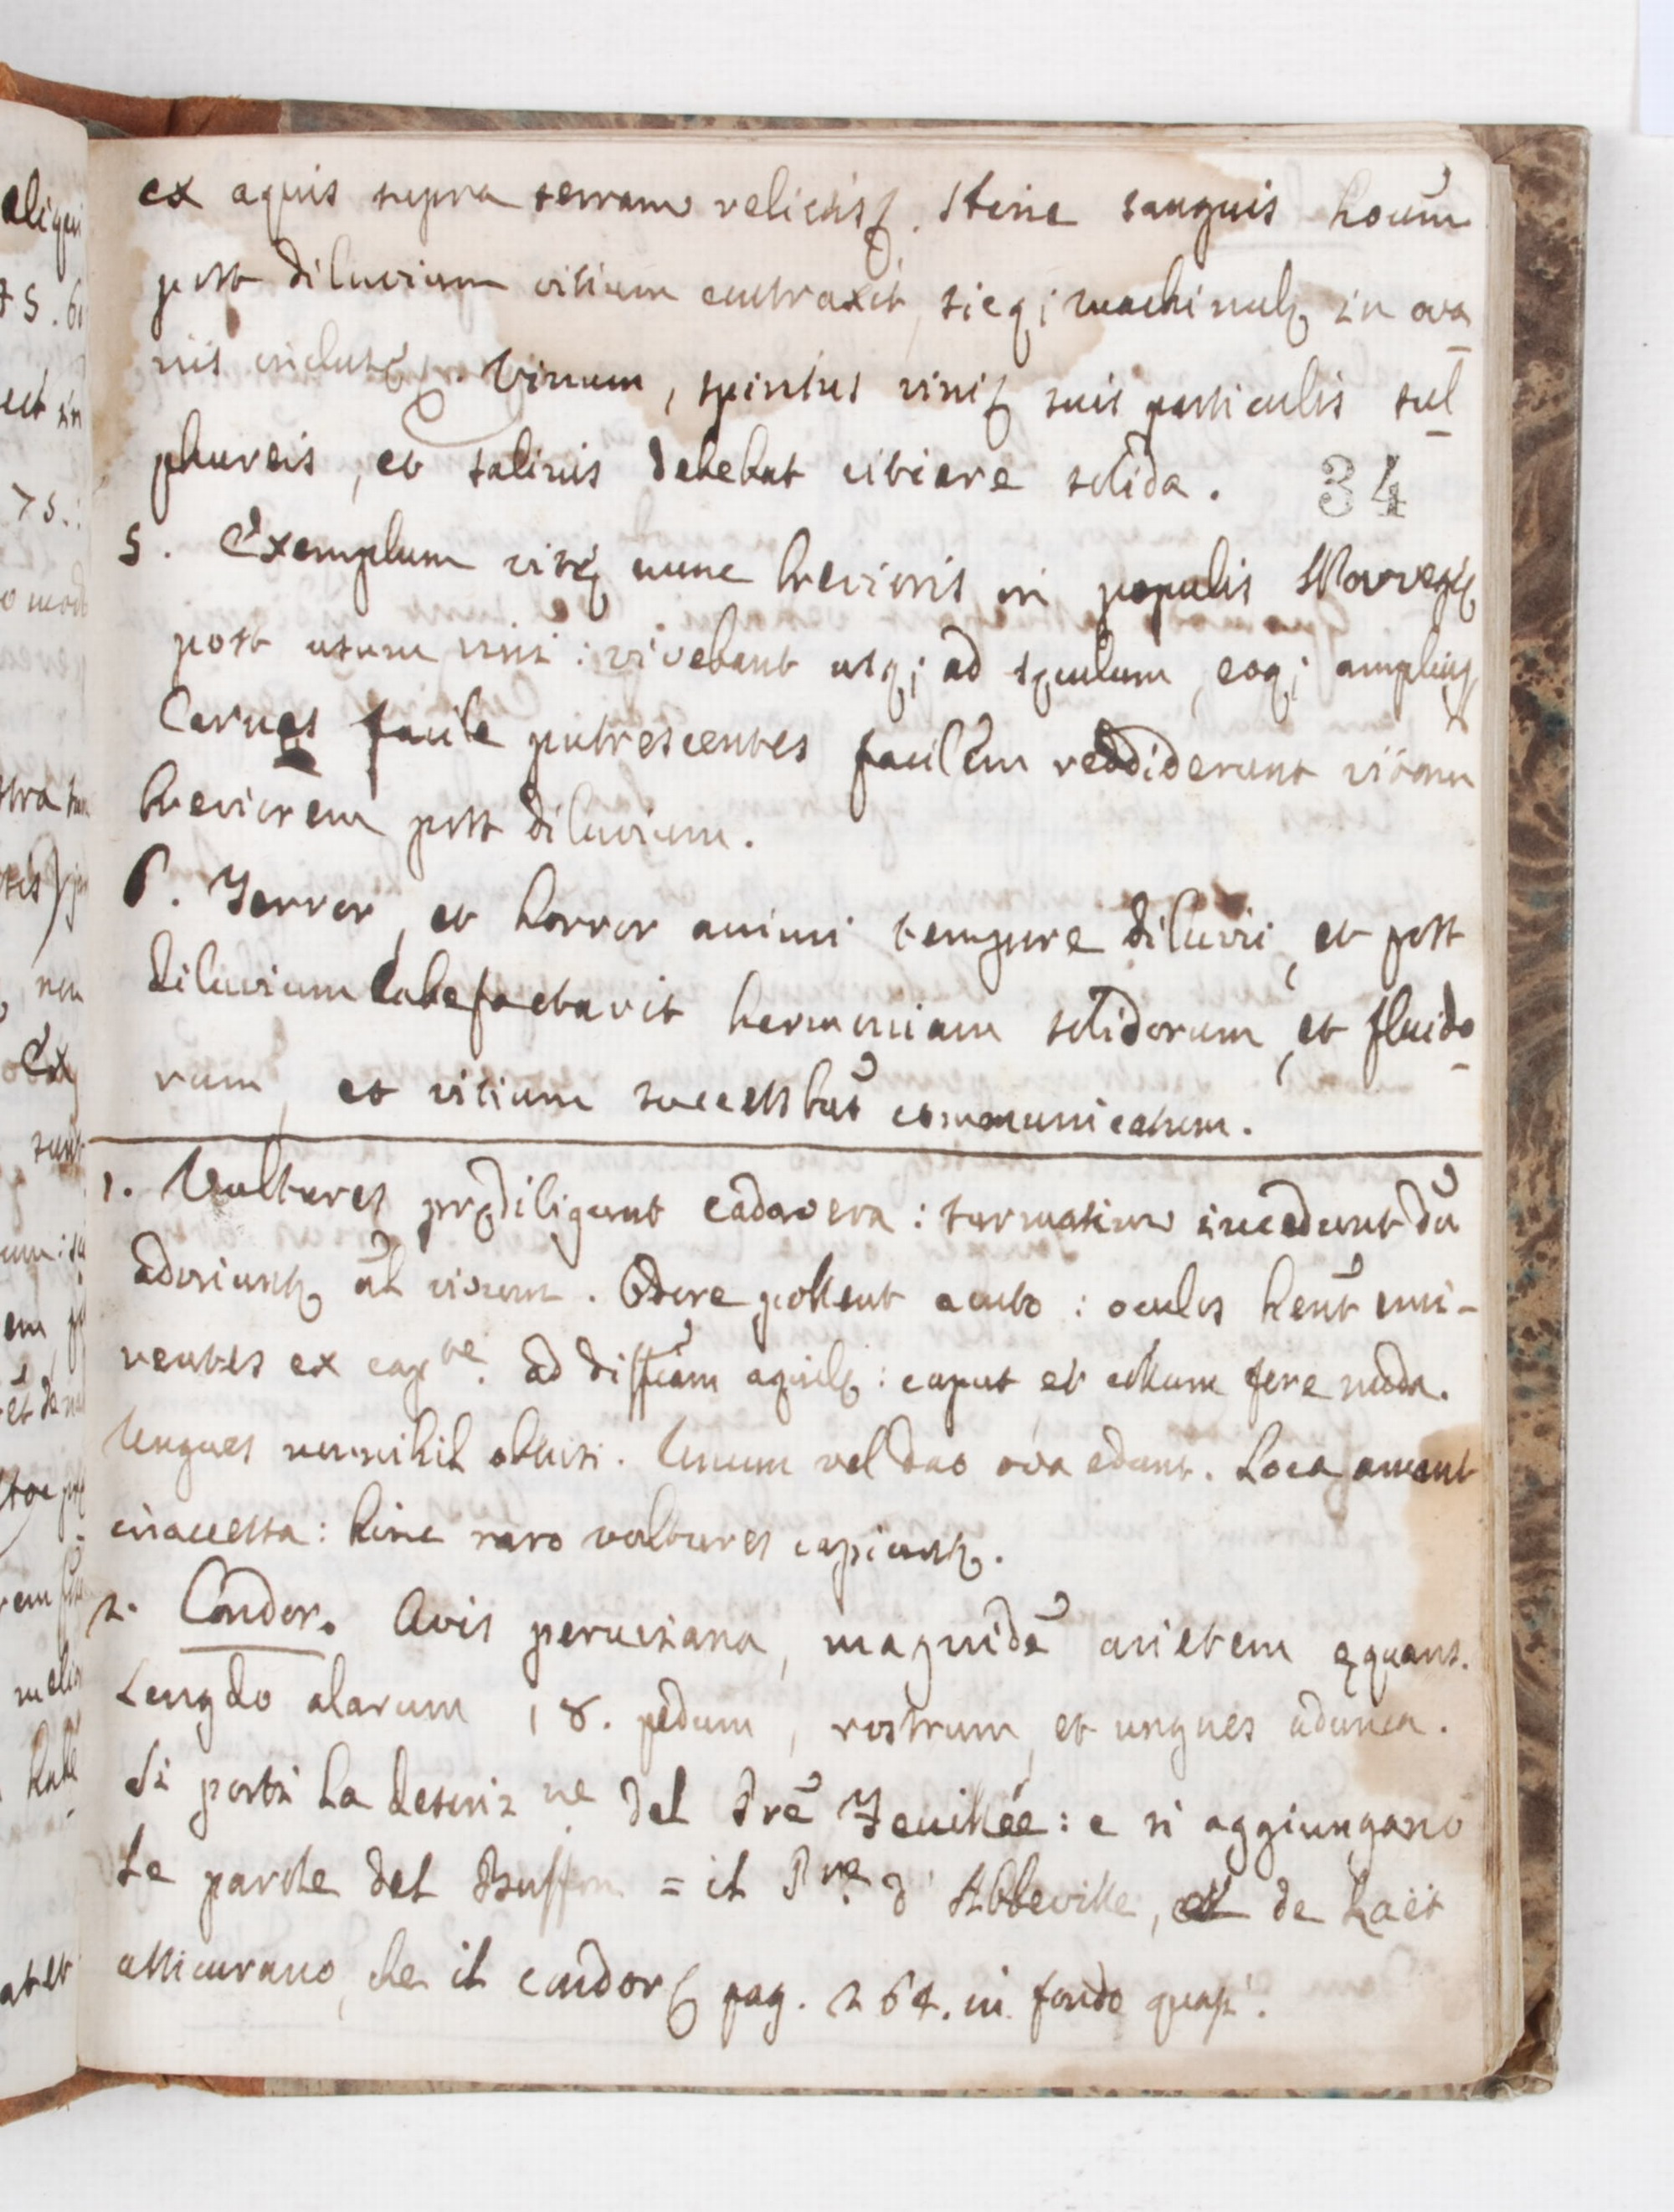 ex aquis supra terram relictis. Hinc sanguis hoũm
post diluvium vitium contraxit, sicq; machinulę in ova
riis inclusę. Vinum, spiritus vini suis particulis sul
phureis, et salinis debebat vitiare solida.
34
5. Exemplum vitę nunc brevioris in populis Norvegię
post usum vini: vivebant usq; ad sęculum, eoq; amplius
Carnes facile putrescentes facilem reddiderunt vitam
breviorem post diluvium.
6. Terror, et horror animi tempore diluvii, et post
diluvium labefactavit harmoniam solidorum, et fluido
rum, et vitium communicatum.
1. Vultures prędiligunt cadavera: turmatim incedunt dũ
adoriuntur ãl vivum. Odore pollent acuto: oculos hẽnt emi-
nentes ex capte. ad diffiam aquilę: caput et collum fere nuda.
Ungues nonnihil obtusi. Unum vel duo ova edunt. Loca amant
inaccessa: hinc raro vultures capiuntur.
2. Condor. Avis peruviana, magnidẽ arietem ęquans.
Longdo alarum 18. pedum, rostrum, et ungues adunca.
Si porti la descrizne del Prẽ Feuillée: e si aggiungano
le parole del Buffon = il Pre d'Abbeville, de Laët
assicurano, che il condor pag. 264. in fondo quasi.